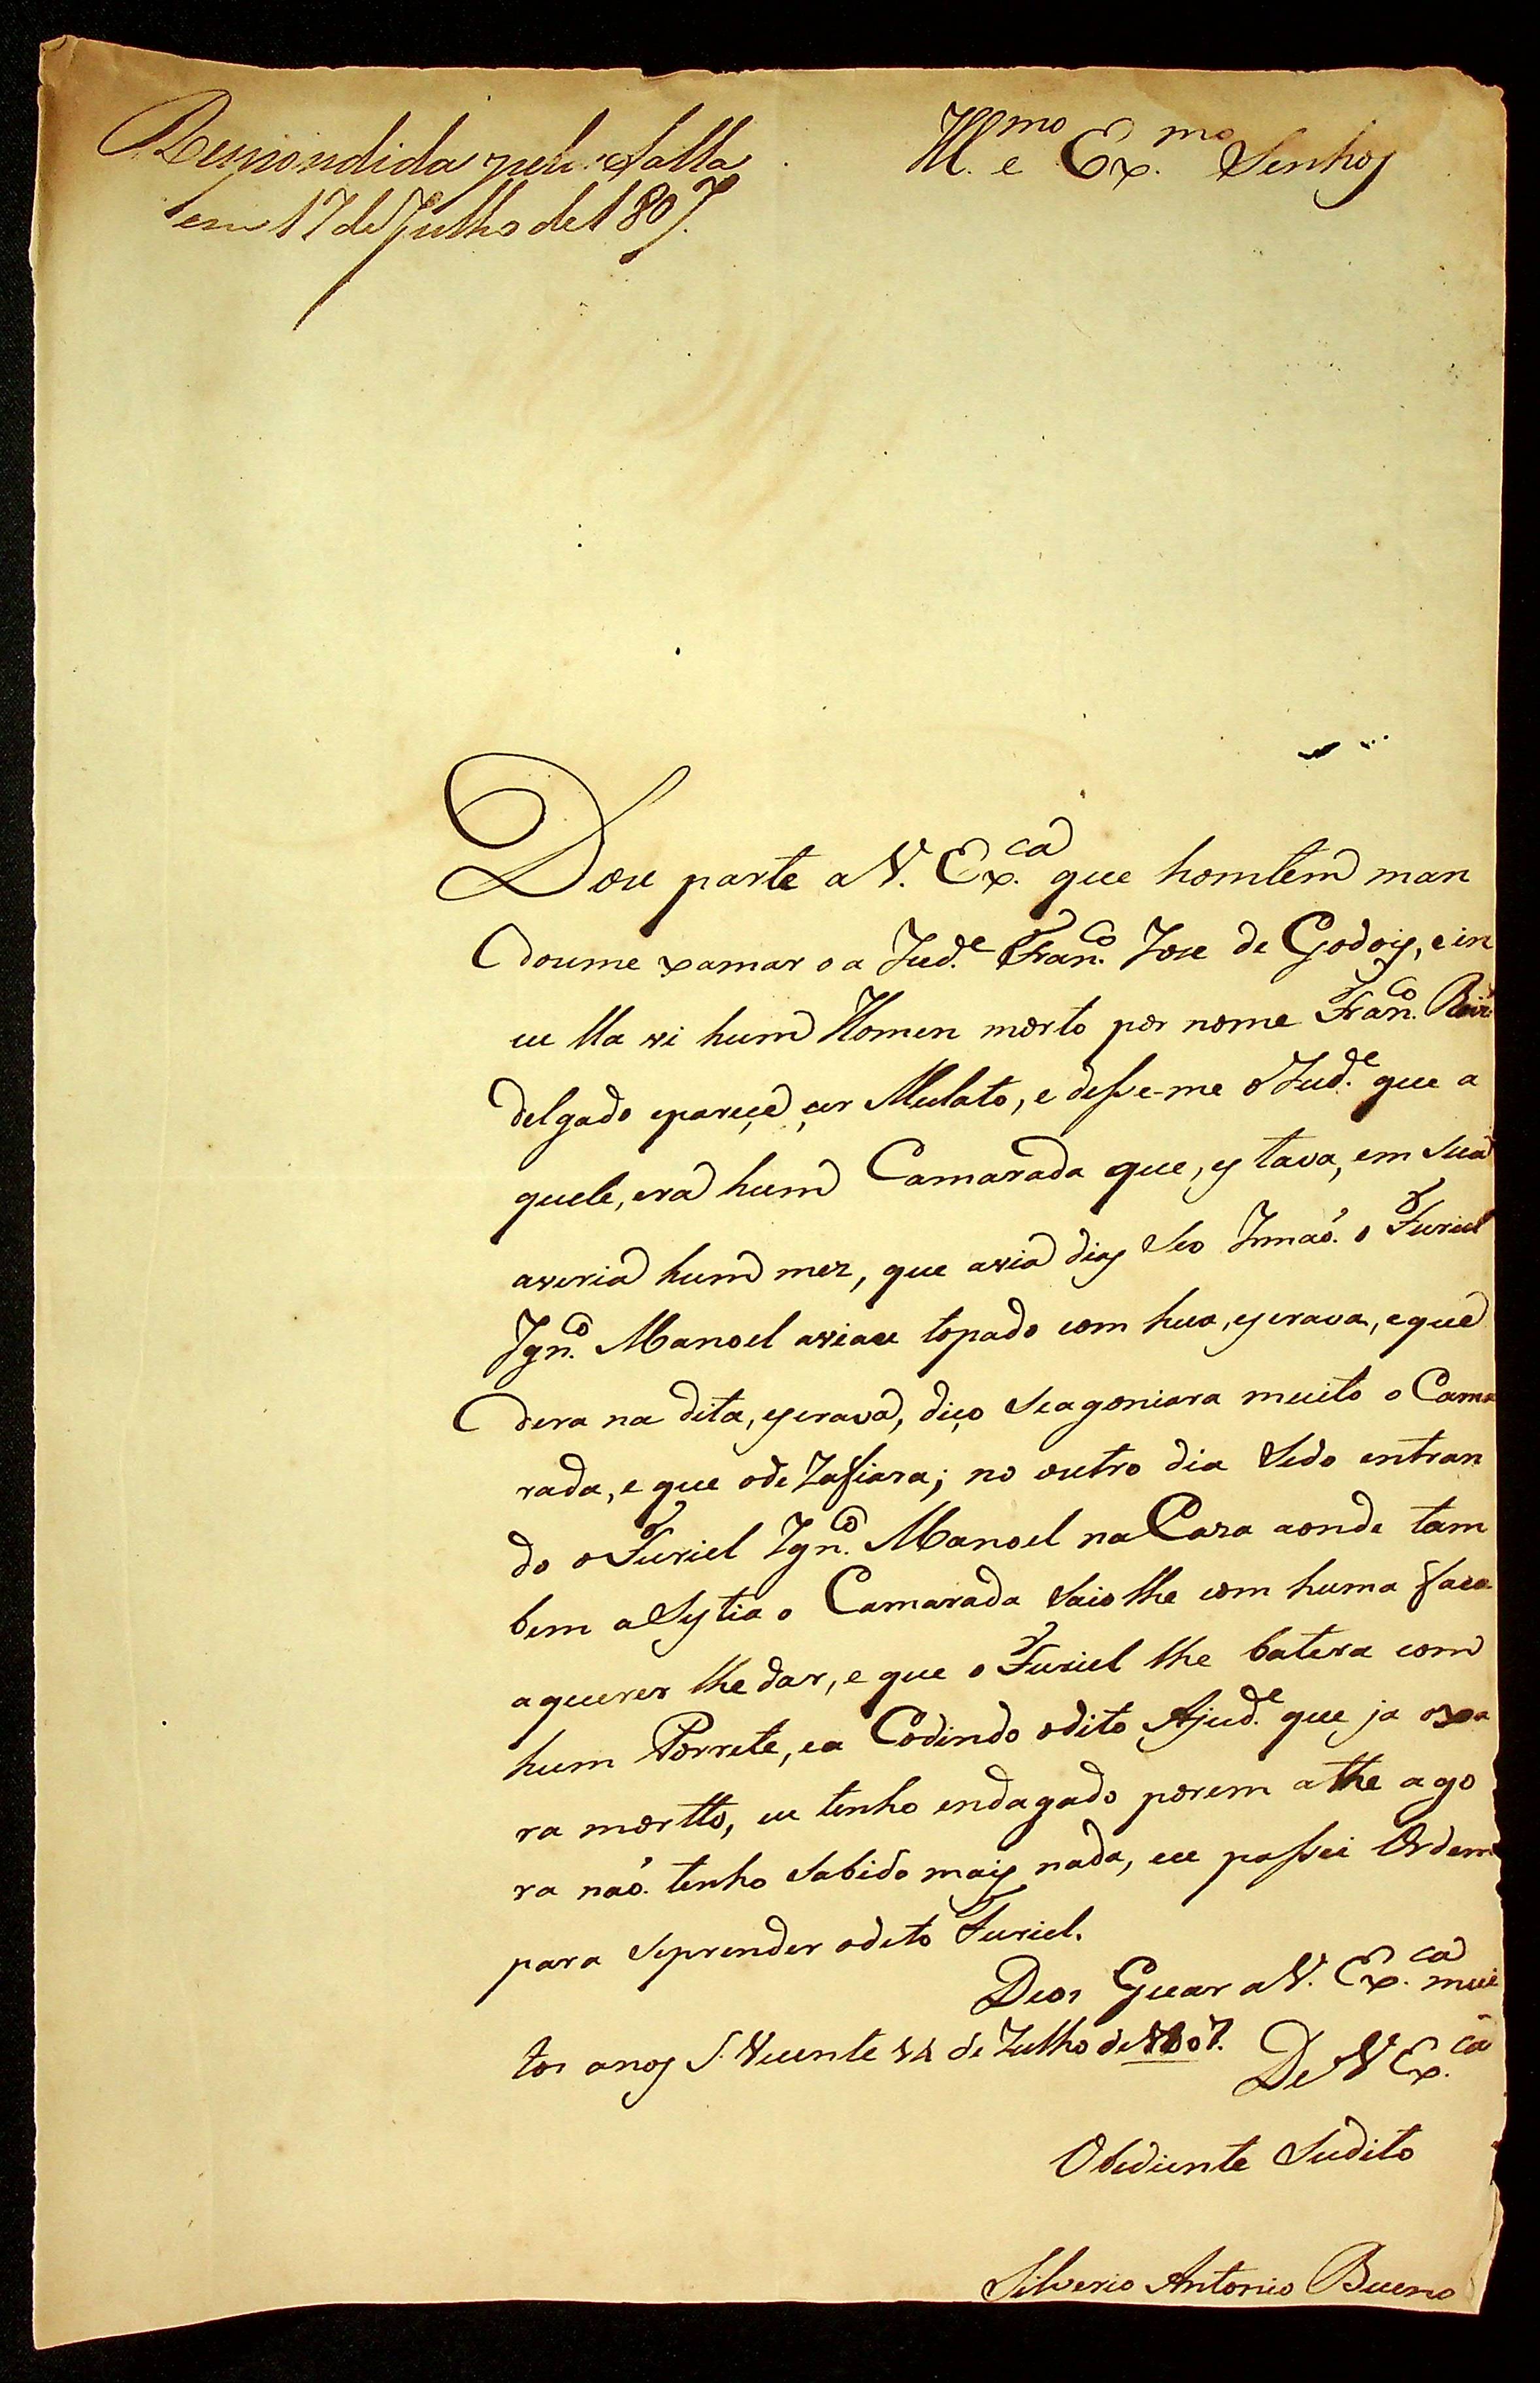 Respondida pela Salla
em 17 de Julho de 1807.
Ill.mo e Ex.mo Senhor
Dou parte a V. Ex.ca que homtem man
doume xamar o a Jud.e Fran.co Joze de Godoy, e in
u lla vi hum Homen morto por nome Fran.co
delgado epareçe çer Mulato, e desse-me o Jud.e que a
quele, era hum Camarada que, estava, em Sua
averia hum mez, que avia dias Seo Irmaõ. o Furiel
Ign.co Manoel aviace topado com hua, escrava, eque
dera na dita, escrava, diço Seagoniara muito o Cama
rada, e que odeZafiara; no outro dia Sedo entran
do o Furiel Ign.co Manoel na Caza aonde tam
bem aSestia o Camarada Saiolhe com huma faca
aquerer lhe dar, e que o Furiel lhe batera com
hum Porrete, ea Codindo odito Ajud.e que ja oxa
ra mortto, eu tenho endagado porem athe ago
ra naõ. tenho Sabido mais nada, eu passei Ordem
para Seprender odeto Furiel.
Deos Guar a V. Ex.ca mui
tos anos S. Vicente 14 de Julho de 1807.
De V Ex.ca
Obediente Sudito
Silverio Antonio Bueno